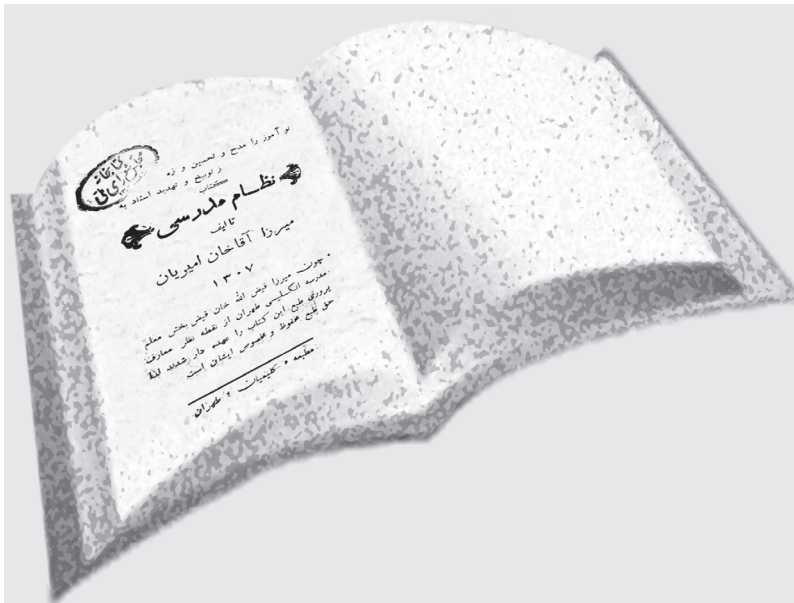 نو آموز را مدح و تحسین و زه
ز توبیخ و تهدید استاد به
کتاب
نظام مدرسی
تالیف
میرزا آقاخان امیریان
۱۳۰۷
چون میرزا فیض الله خان فیض بخش معلم
مدرسه انگلیسی طهران از نقطه نظر معارف
پروری طبع این کتاب را عهده دار شدند لذا
حق طبع محفوظ و مخصوص ایشان است
مطبعه کلیمیان طهران
کتابخانه
مجلس شورای ملی